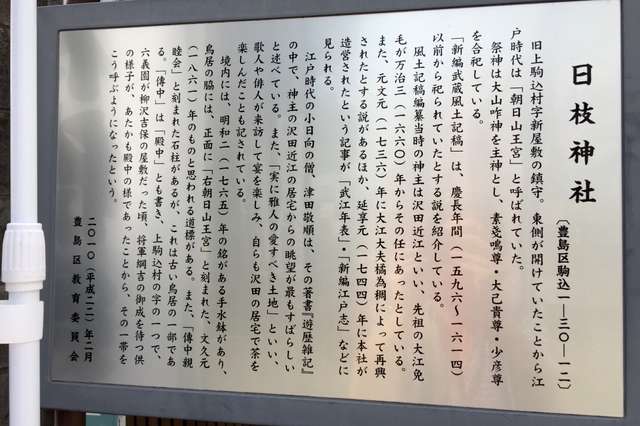 日枝神社
(豊島区駒込一―三〇―一二)
旧上駒込村字新屋敷の鎮守。東側が開けていたことから江
戸時代は、「朝日山王宮」と呼ばれていた。
祭神は大山咋神を主神とし、素戔鳴尊・大己貴尊・少彦尊
を合祀している。
「新編武蔵風土記稿」は、慶長年間(一五九六~一六一四)
以前から祀られていたとする説を紹介している。
風土記稿編纂当時の神主は沢田近江といい、先祖の大江免
毛が万治三(一六六〇)年からその任にあったとしている。
また、元文元(一七三六)年に大江大夫橘為稠によって再興
されたとする説があるほか、延享元(一七四四)年に本社が
造営されたという記事が「武江年表」・「新編江戸志」などに
見られる。
江戸時代の小日向の僧、津田敬順は、その著書『遊歴雑記』
の中で、神主の沢田近江の居宅からの眺望が最もすばらしい
と述べている。また、「実に雅人の愛すべき土地」といい、
歌人や俳人が来訪して宴を楽しみ、自らも沢田の居宅で茶を
楽しんだことも記されている。
境内には、明和二(一七六五)年の銘がある手水鉢があり、
鳥居の脇には、正面に「右朝日山王宮」と刻まれた、文久元
(一八六一)年のものと思われる道標がある。また、「傳中親
睦会」と刻まれた石柱があるが、これは古い鳥居の一部であ
る。「傳中」は「殿中」とも書き、上駒込村の字の一つで、
六義園が柳沢吉保の屋敷だった頃、将軍綱吉の御成を待つ供
の様子が、あたかも殿中の様であったことから、その一帯を
こう呼ぶようになったという。
二〇一〇(平成二二)年二月
豊島区教育委員会